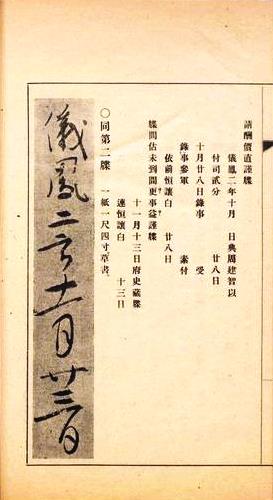 請酬價直謹牒
儀鳳二年十月 日典周建智以
付司貳分 廿八日
十月廿八日錄事 受
錄事參軍 素付
依前恒讓白 廿八日
牒問估未到間更事益謹牒
十一月十三日府史藏牒
連恒讓白 十三日
○同第二牒 一紙一尺四寸草書
儀鳳二年十一月廿三日